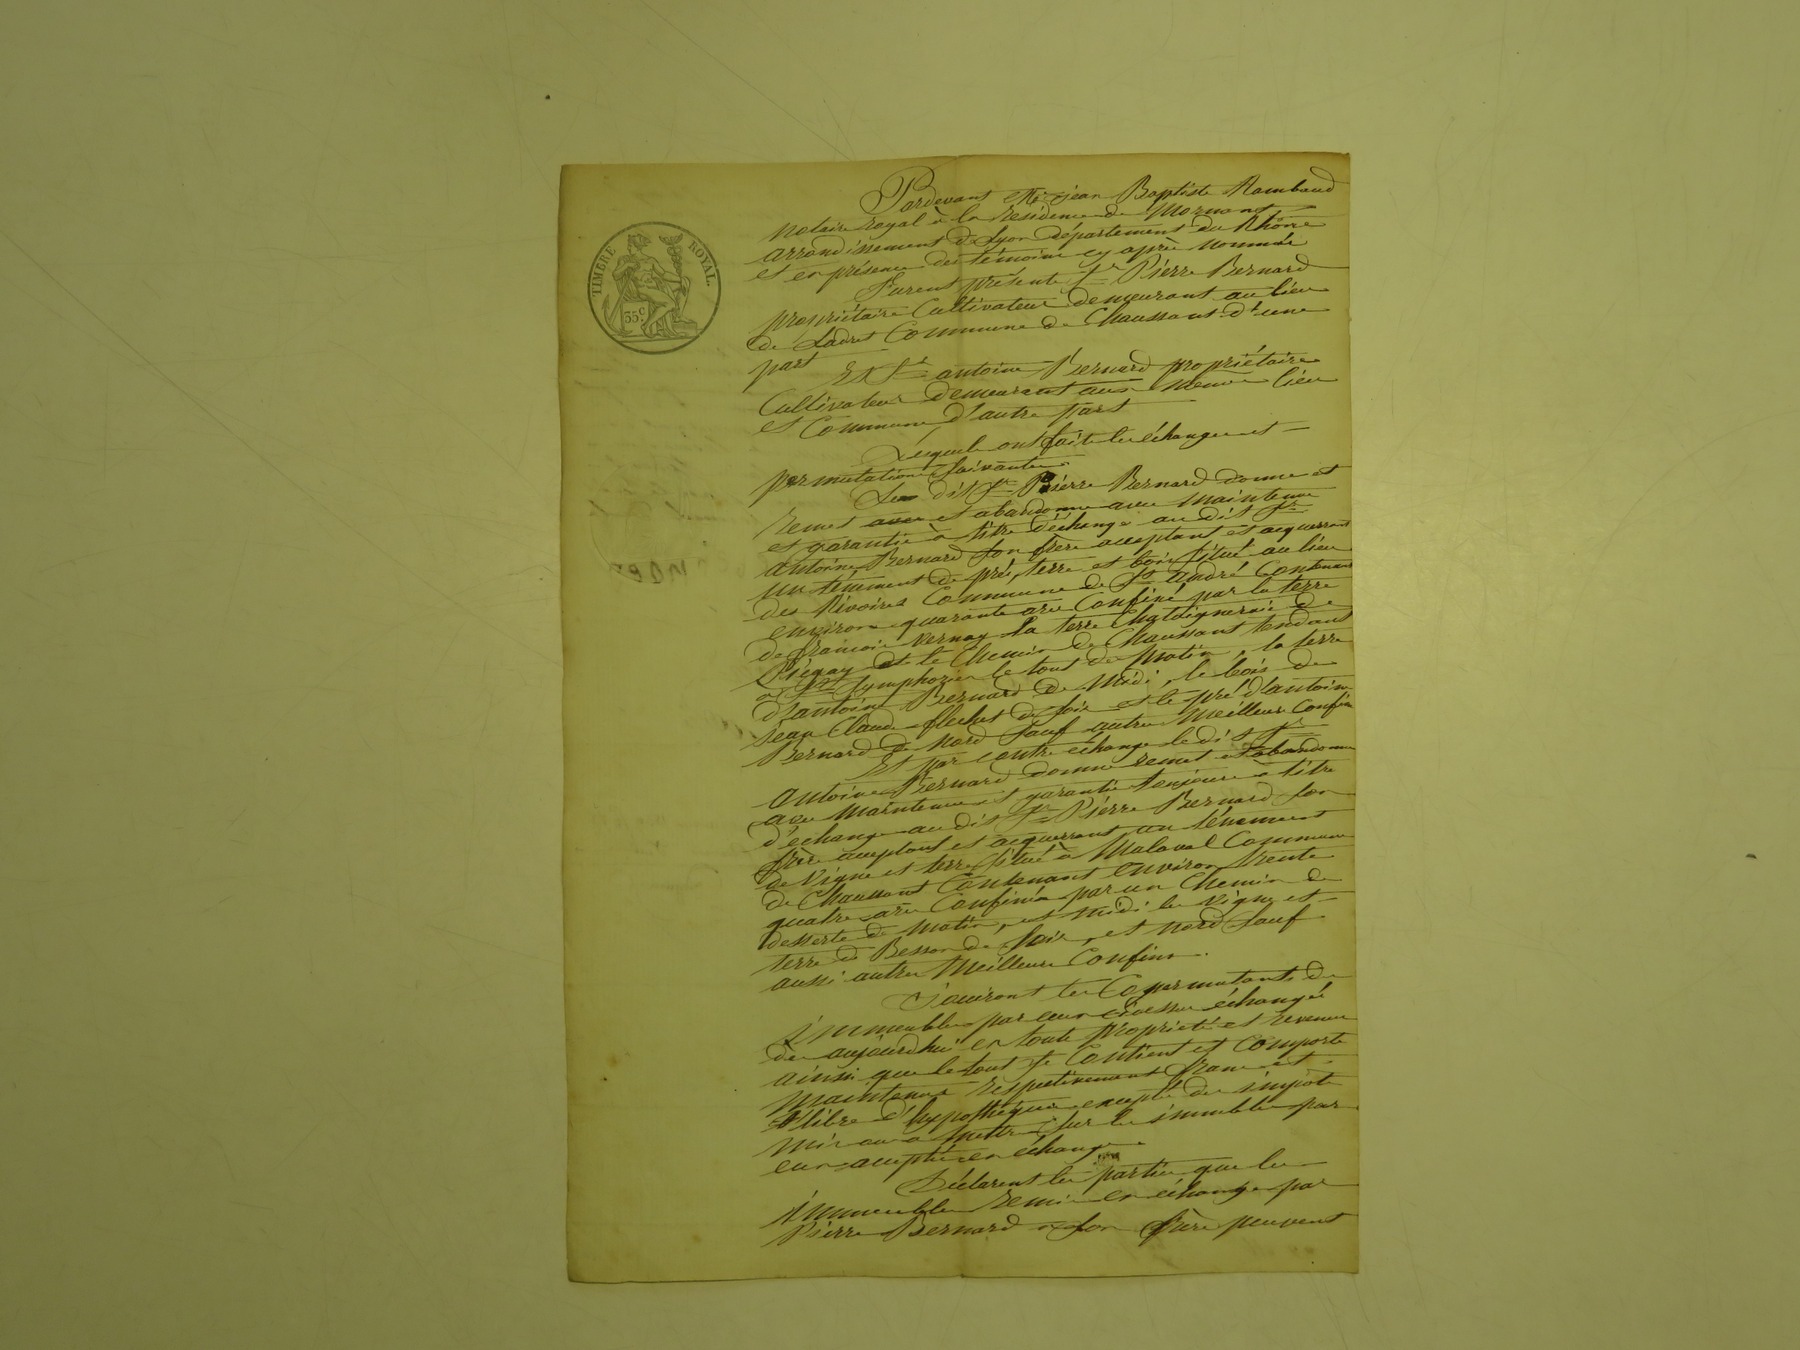 TIMBRE ROYAL.
35 c.
Pardevant Me jean Baptiste Rambaud
notaire royal à la résidence de Mornant
arrondissement de Lyon département du Rhône
et en présence des témoins cy après nommés
Furent présents Sr Pierre Bernard
propriétaire Cultivateur demeurant au lieu
de Commune de Chaussant d'une
part
Et Sr antoine Bernard propriétaire
Cultivateur demeurant aux meme lieu
et Commune d'autre part
Lesquels ont fait les échanges et
permutations suivantes
Le dit Sr Pierre Bernard donne et
remet avec et abandonne avec maintenue
et garantie à titre d'échange au dit Sr
antoine Bernard son frère acceptant et acquerrant
un ténement de pré, terre et bois situé au lieu
des Rivoires Commune de St andré Contenant
environ quarante ares Confiné par la terre
de françois vernay la terre Chataigneraie de
Piégay et le Chemin de Chaussant tendant
à St Symphorien le tout de matin, la terre
d'antoine Bernard de midi, le bois de
Jean Claude flechet de soir et le pré d'antoine
Bernard de nord sauf autres meilleurs Confins
Et par contre échange le dit Sr
antoine Bernard donne remet et abandonne
avec maintenue et garantie toujours à titre
d'échange au dit Sr Pierre Bernard son
frère acceptant et acquerrant un ténement
de vigne et terre situé à Malaval Commune
de Chaussant Contenant environ trente
quatre ares Confiné par un Chemin de
desserte de matin, et midi les vigne et
terre de Besson de soir, et nord sauf
aussi autres Meilleurs Confins.
Jouiront les Copermutants des
immeubles par eux cidessus échangés
dès aujourdhui en toute propriété et revenus
ainsi que le tout se Contient et Comporte
maintenus respectivement francs et
libre d'hypothèques excepté des impôts
mis ou à mettre sur les immeubles par
eux acceptés en échange
Déclarent les parties que les
immeubles remis en échange par
Pierre Bernard à son frère peuvent